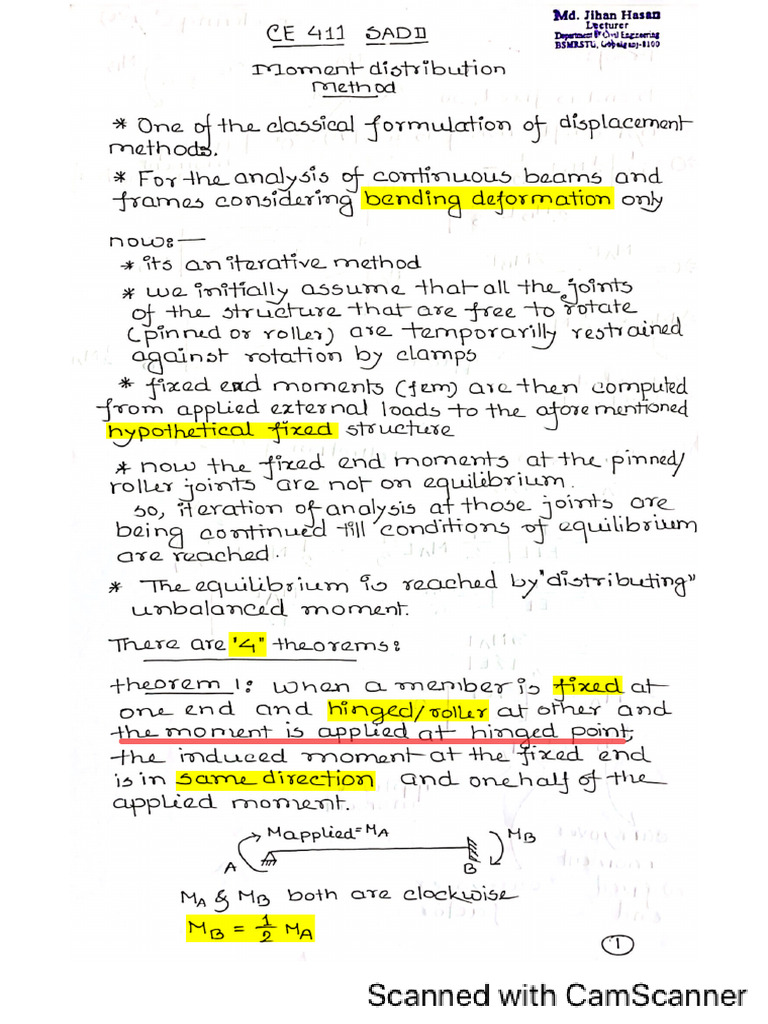 CE 411 SADII
Md. Jihan Hasan
Lecturer
Department of Civil Engineering
BSMRSTU, Gopalganj-8100
Moment distribution
Method
* One of the classical formulation of displacement
methods.
* For the analysis of continuous beams and
frames considering bending deformation only
now:—
* its an iterative method
* we initially assume that all the joints
of the structure that are free to rotate
(pinned or roller) are temporarilly restrained
against rotation by clamps
* fixed end moments (fem) are then computed
from applied external loads to the aforementioned
hypothetical fixed structure
* now the fixed end moments at the pinned/
roller joints are not on equilibrium.
so, iteration of analysis at those joints are
being continued till conditions of equilibrium
are reached.
* The equilibrium is reached by "distributing"
unbalanced moment.
There are "4" theorems:
theorem 1: when a member is fixed at
one end and hinged/roller at other and
the moment is applied at hinged point,
the induced moment at the fixed end
is in same direction and one half of the
applied moment.
Mapplied = MA
MB
A
B
MA & MB both are clockwise
MB = 1/2 MA
1
Scanned with CamScanner